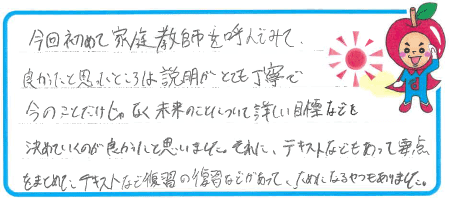 今回初めて家庭教師を呼んでみて、
良かったと思いところは説明がとても丁寧で
今のことだけじゃなく未来のことについて詳しい目標などを
決めていくのが良かったと思いました。それに、テキストなどもあって要点
をまとめて、テキストなど復習の復習などがあって、ためになるやつもありました。